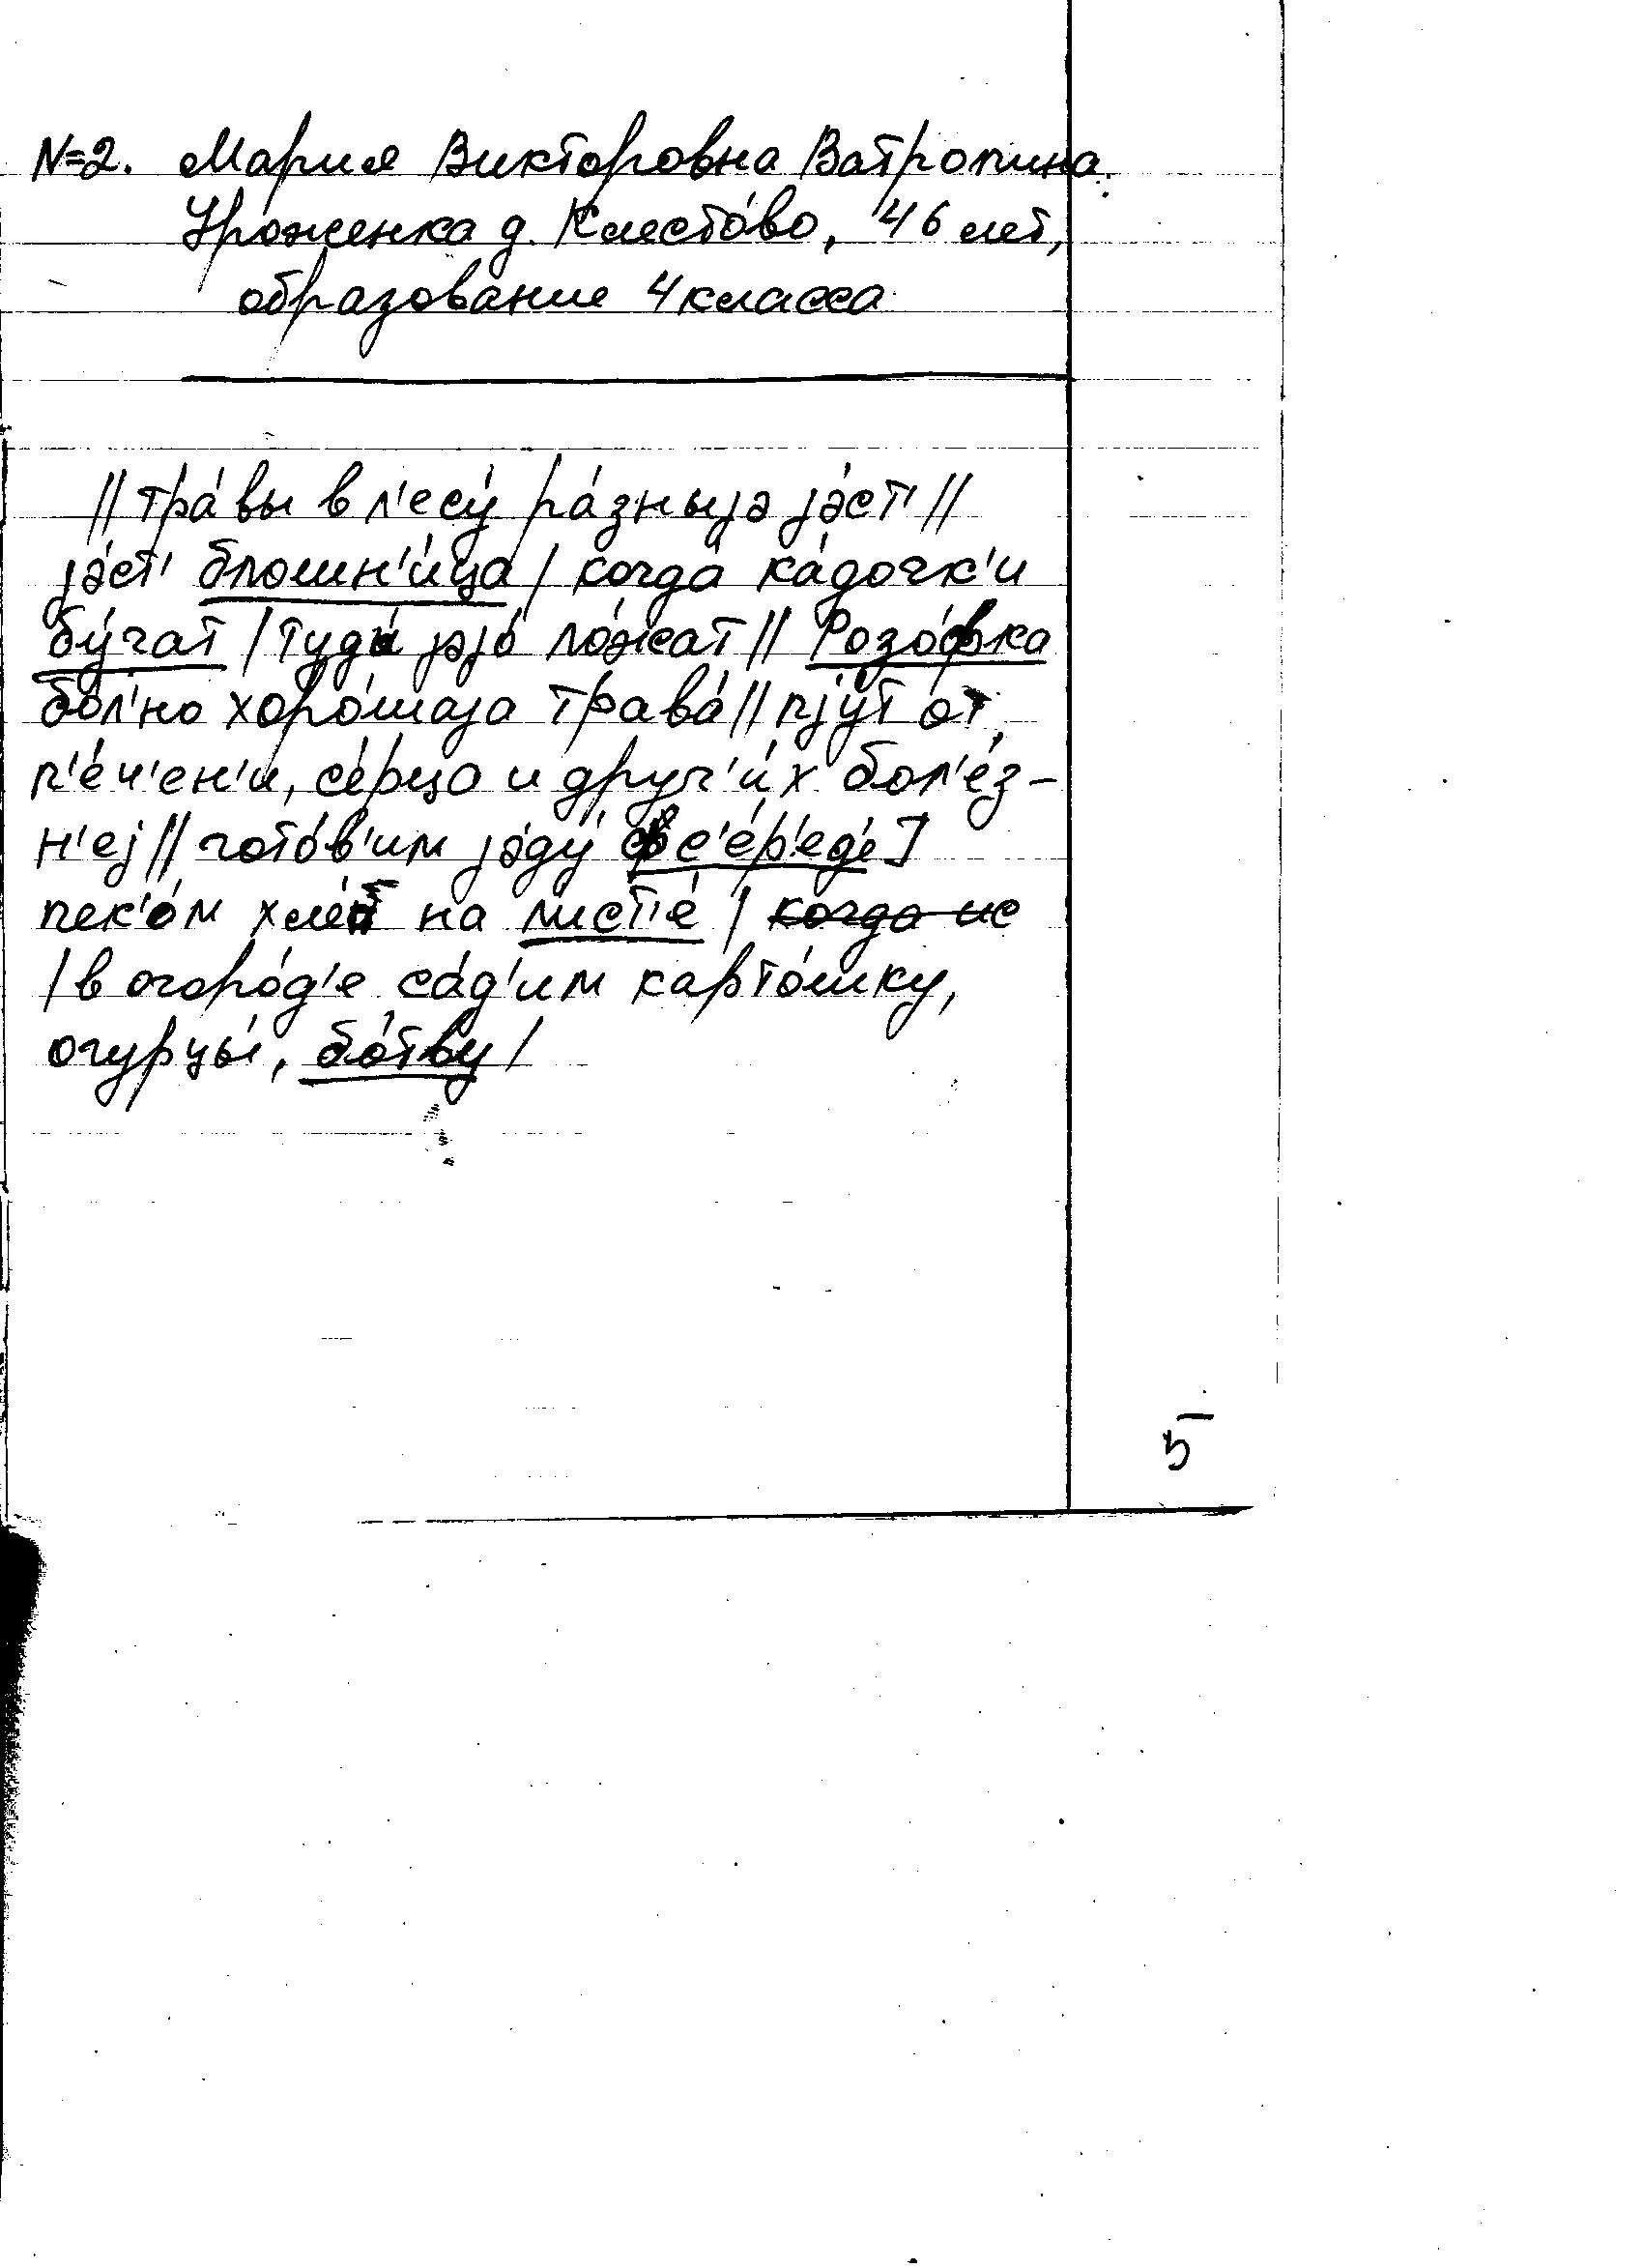 №2. Мария Викторовна Ватропина.
Уроженка д. Клесто́во, 46 лет,
образование 4 класса
// тра́вы в л'есу́ ра́зныjə jəст' //
jəст' блошн'и́ца / когда́ ка́дочк'и
бу́чат / туда́ jəjо́ ло́жат // Розо́фка
бо́л'но хоро́шаjа трава́ // пjу́т от
п'е́ч'ен'и, се́рца и друг'и́х бол'е́з-
н'еj // гото́в'им jəду́ ф с'е́р'еде́ ]
пек'о́м хле́п на лист'е́ / ~~когда ис~~
/ в огоро́д'е са́д'им карто́шку,
огурцы́, бо́тву /
5